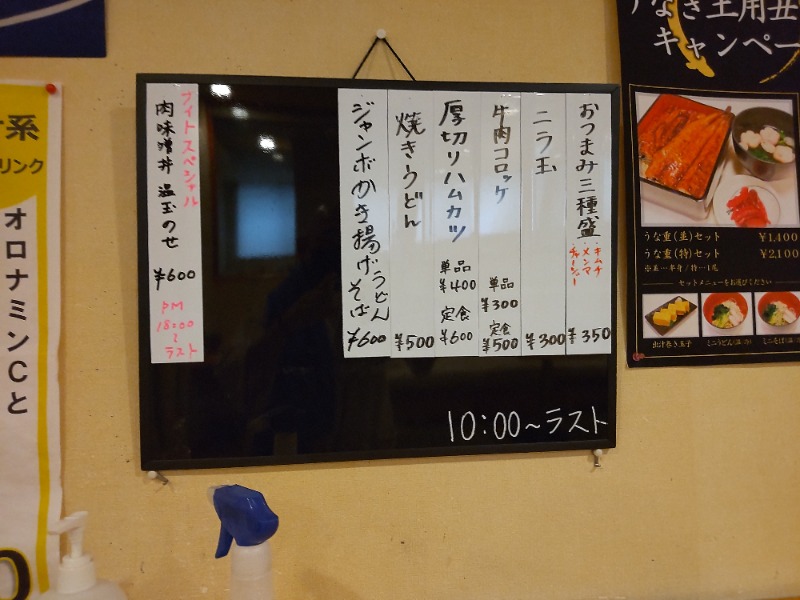 おつまみ三種盛
・キムチ
・メンマ
・チャーシュー
¥350
ニラ玉
¥300
牛肉コロッケ
単品
¥300
定食
¥500
厚切りハムカツ
単品
¥400
定食
¥600
焼きうどん
¥500
ジャンボかき揚げうどん
そば
¥600
ナイトスペシャル
肉味噌丼 温玉のせ
¥600
PM
18:00
〜
ラスト
10:00~ラスト
うなぎ土用丑
キャンペー
うな重(並)セット ¥1,400
うな重(特)セット ¥2,100
※並…半身/特…1尾
セットメニューをお選びください
出汁巻き玉子
ミニうどん(温/冷)
ミニそば(温/冷)
系
リンク
オロナミンCと